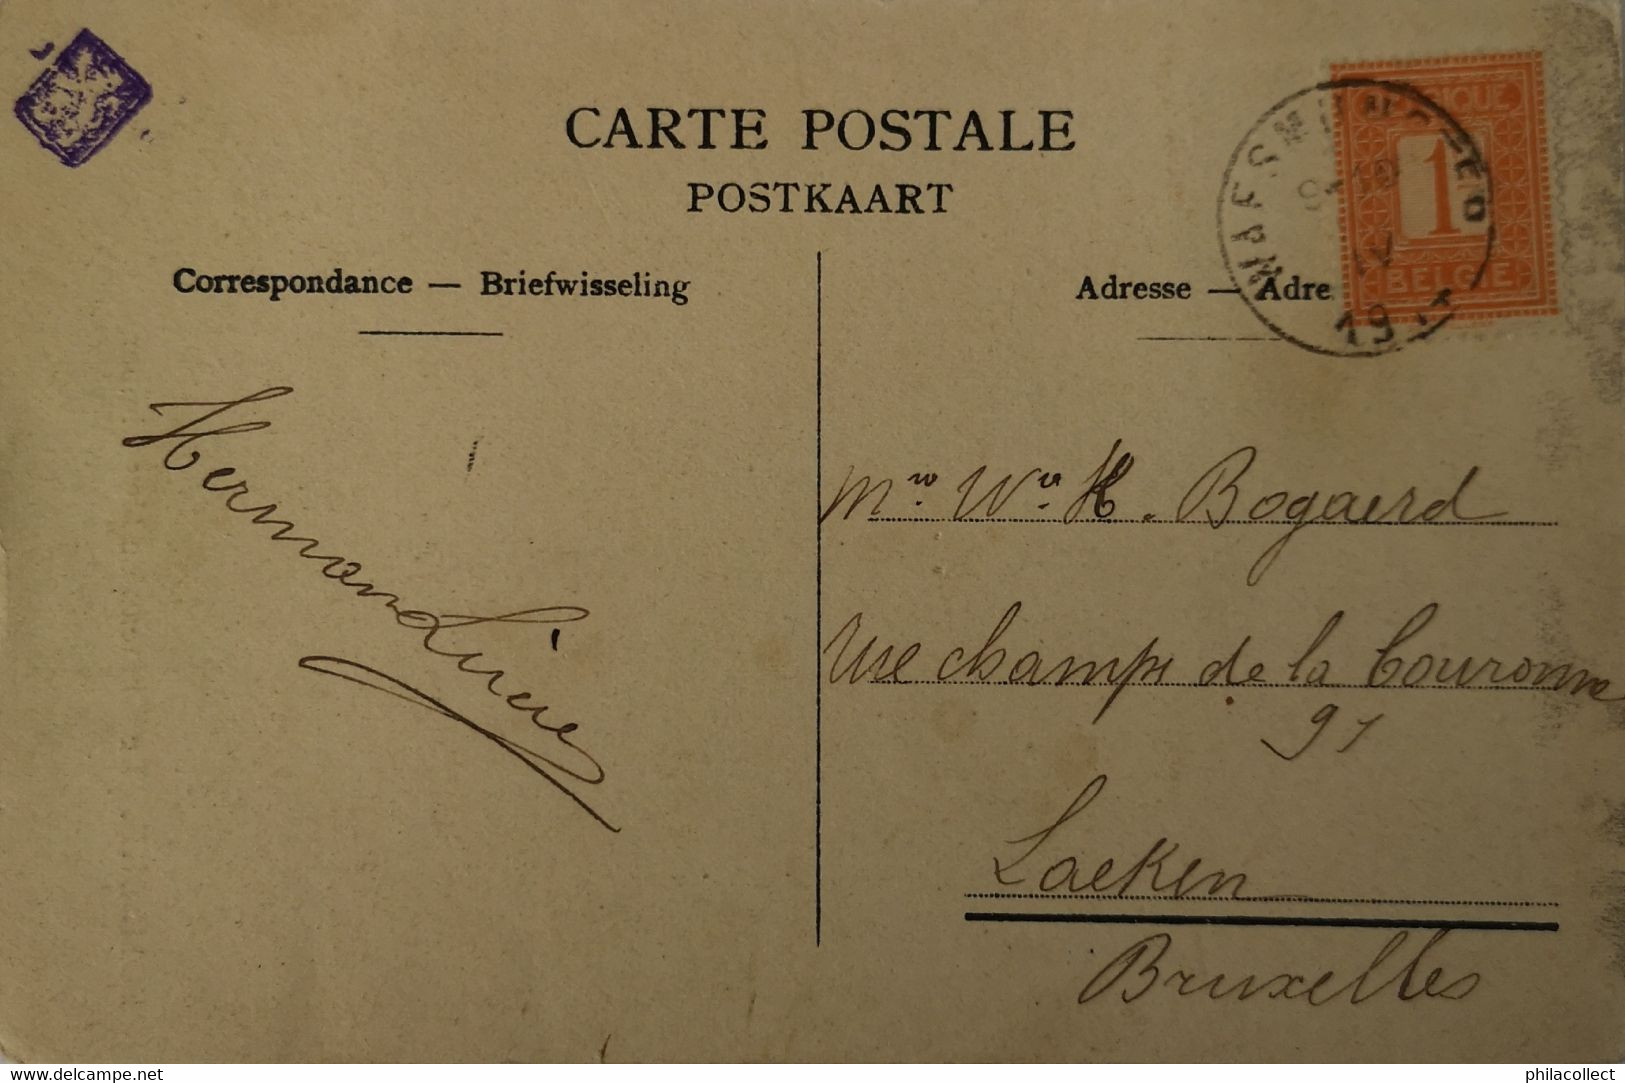 CARTE POSTALE
POSTKAART
Correspondance — Briefwisseling
Adresse — Adre
BELGIQUE
1
BELGIE
Mw. Wa. H. Bogaerd
rue champs de la Couronne
91
Laeken
Bruxelles
delcampe.net
philacollect